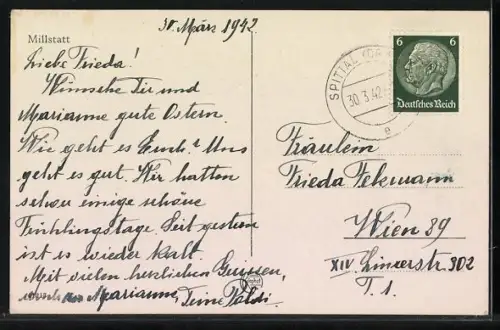 30. März 1942
Millstatt
Liebe Frieda!
Wünsche Dir und
Marianne gute Ostern.
Wie geht es Euch? Uns
geht es gut. Wir hatten
schon einige schöne
Frühlingstage. Seit gestern
ist es wieder kalt.
Mit vielen herzlichen Grüssen,
auch an Marianne, Deine Poldi.
6 6
Deutsches Reich
SPITTAL (DRAU
30.3.42
a
Fräulein
Frieda
Wien 89
XIV. Linzerstr. 302
T. 1.